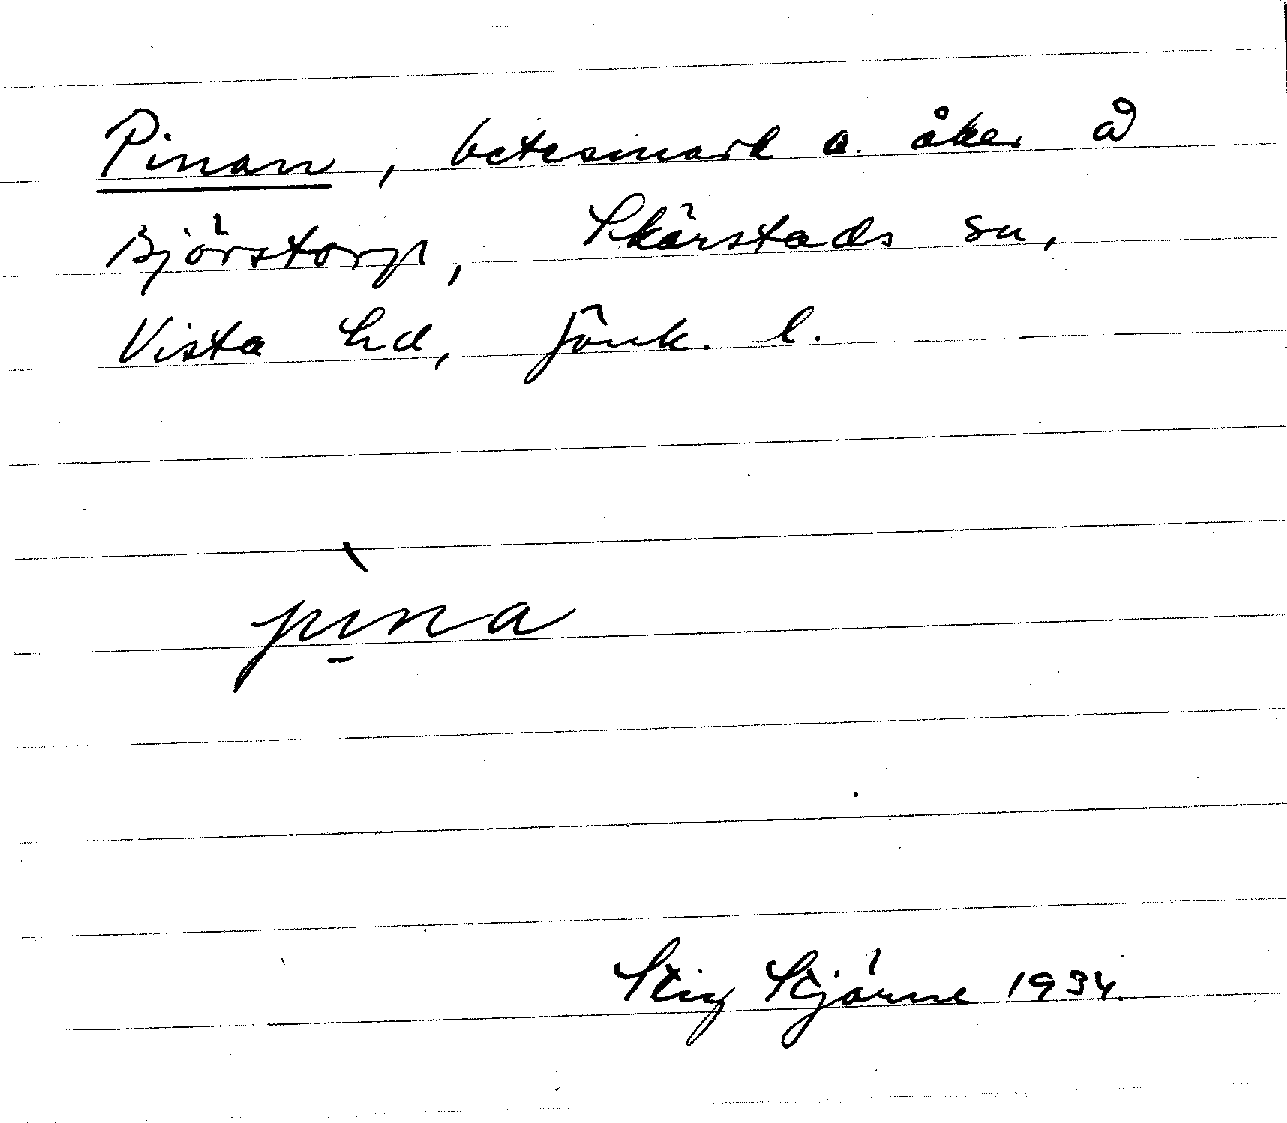 Pinan, betesmark o. åker å
Björstorp, Skärstads sn,
Vista hd, Jönk. l.
pì̠na
Stig Stjärne 1934.